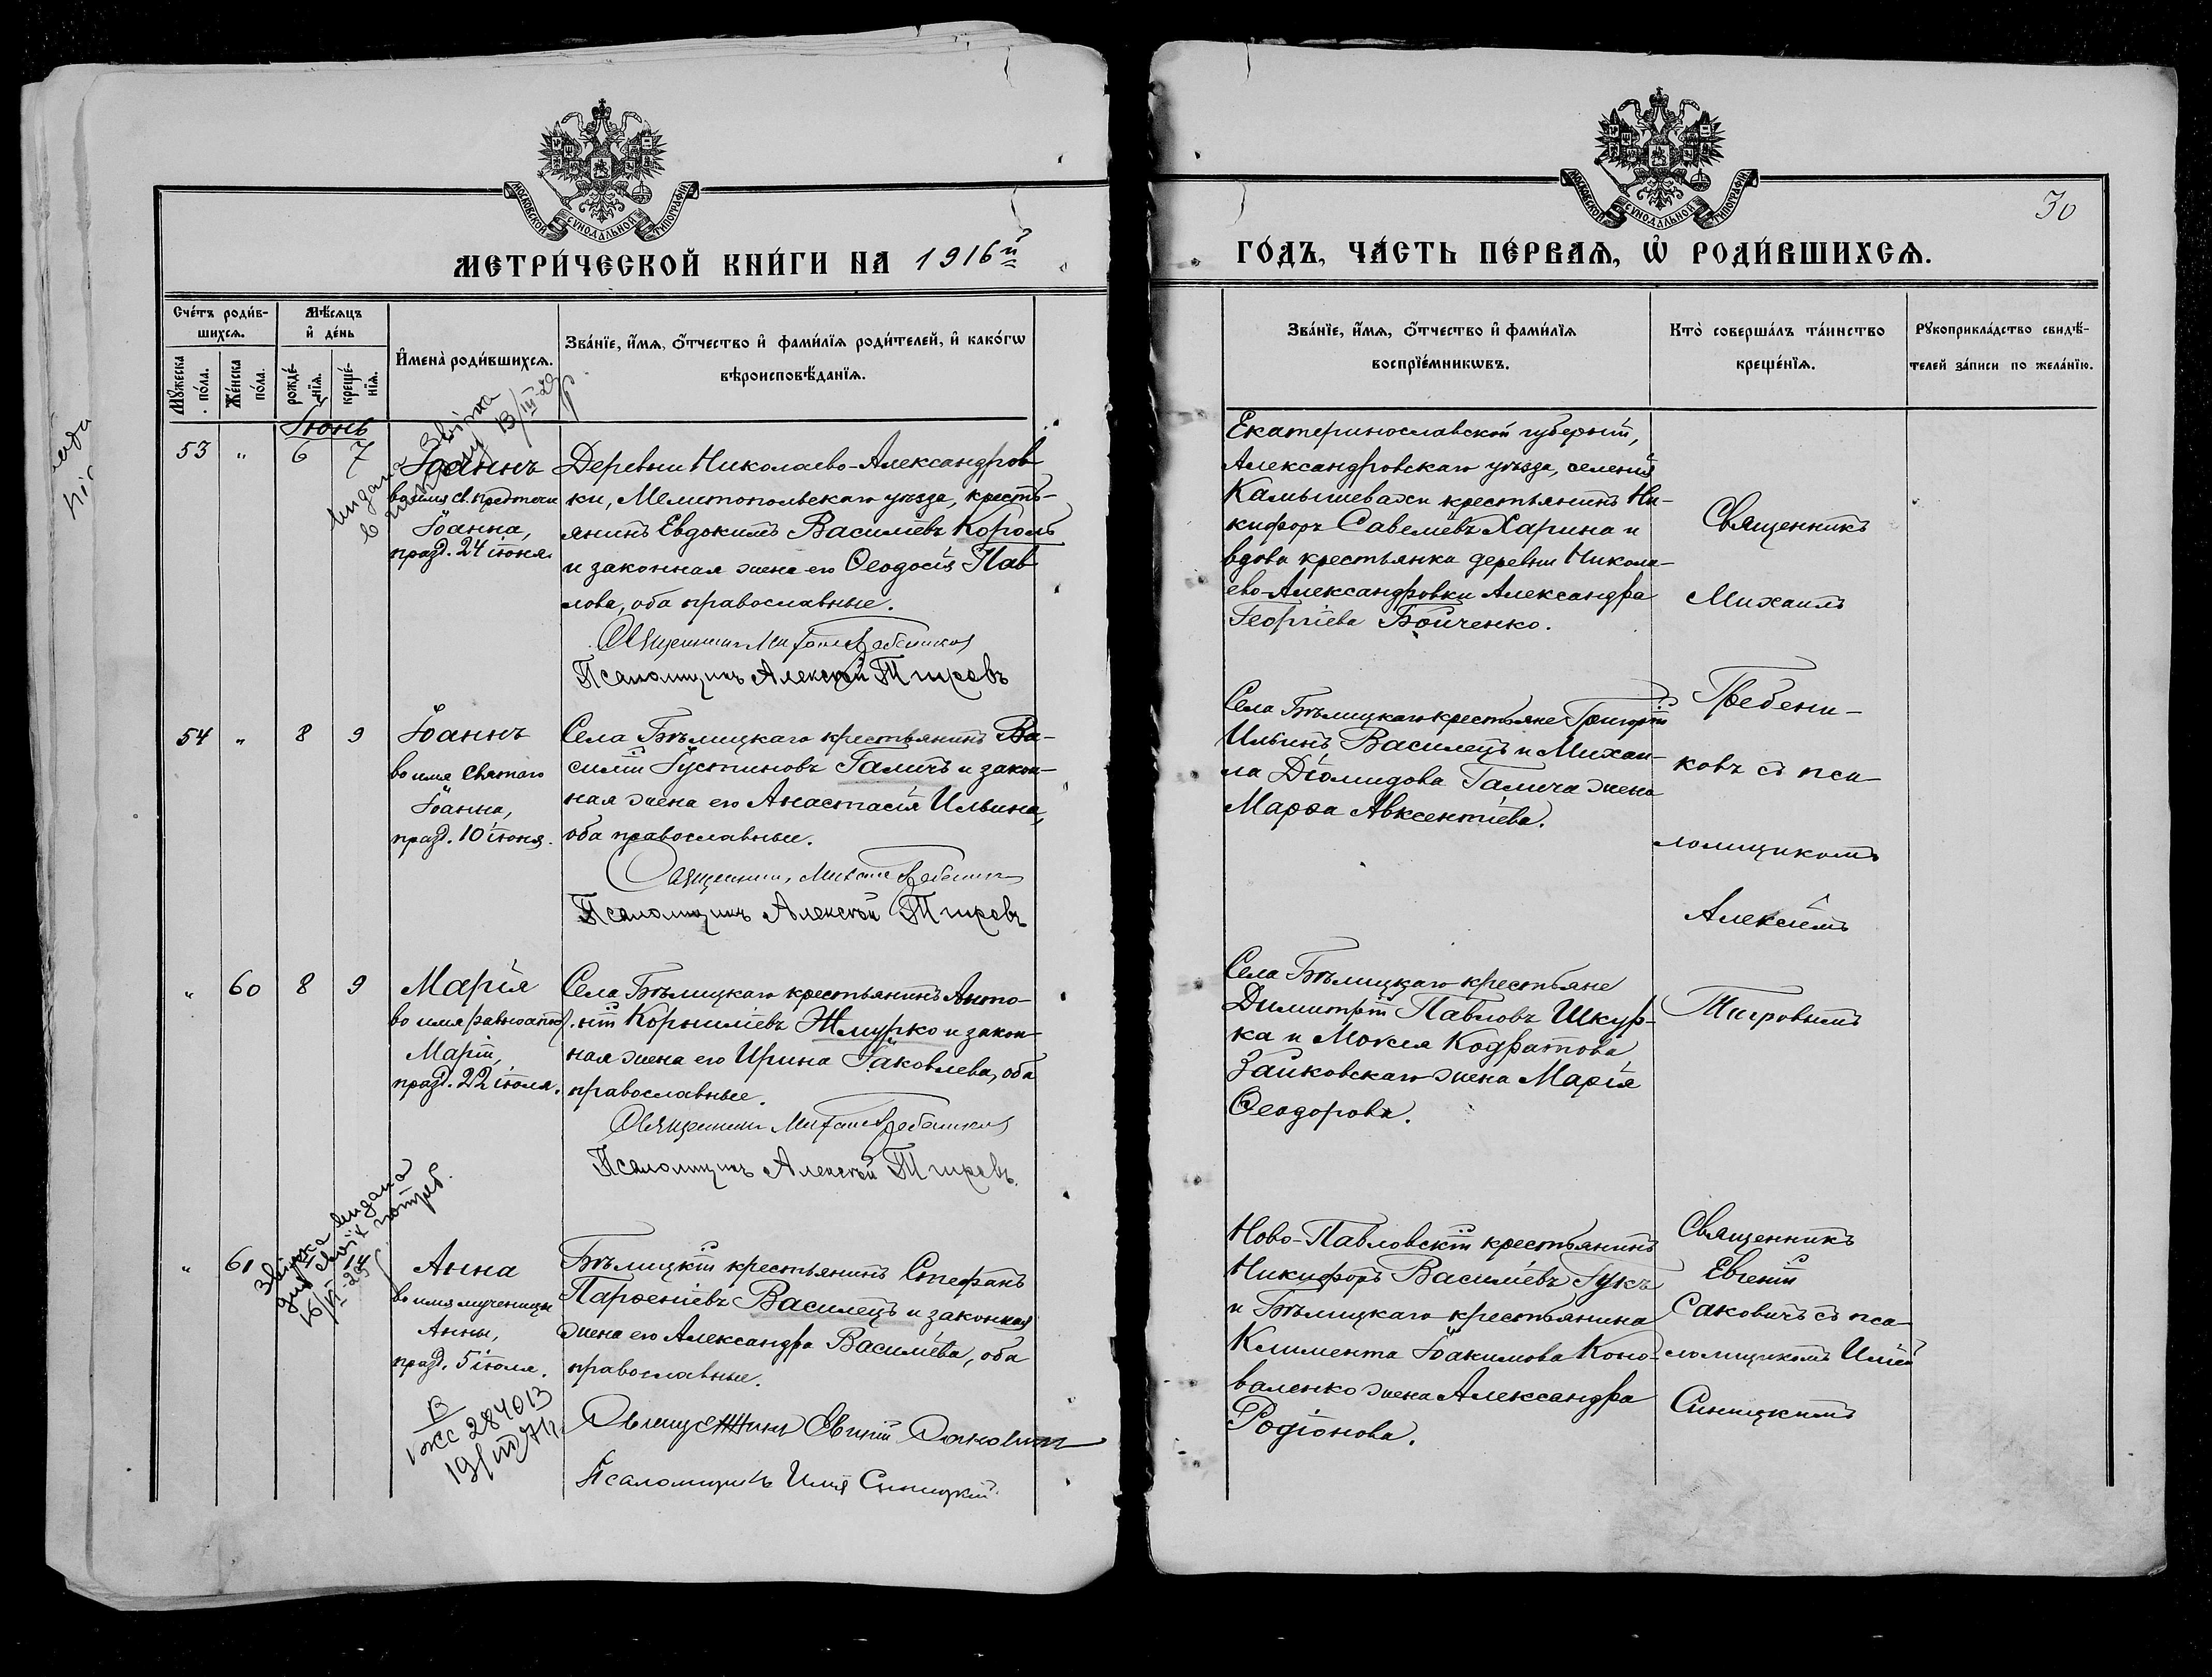 МОСКОВСКОЙ СѴНОДАЛЬНОЙ ТИПОГРАФІИ
МЕТРИ́ЧЕСКОЙ КНИ́ГИ НА 1916й
Сче́тъ роди́в-
шихсѧ.
Мѣ́сѧцъ
и҆ де́нь
Мꙋ́жеска
по́ла.
Же́нска
по́ла.
рожде́-
нїѧ.
креще́-
нїѧ.
И҆мена̀ роди́вшихсѧ.
Зва́нїе, и҆́мѧ, ѻ҆́тчество и҆ фами́лїѧ роди́телей, и҆ како́гѡ
вѣроисповѣ́данїѧ.
Звірка
13/III-29
Іюнь
53 " 6 7
Іоаннъ
во имя св. Предтечи
Іоанна,
празд. 24 іюня.
Деревни Николаево-Александров-
ки, Мелитопольскаго уѣзда, кресть-
янинъ Евдокимъ Василіевъ Король
и законная жена его Ѳеодосія Пав-
лова, оба православные.
Священникъ Михаилъ Гребениковъ
Псаломщикъ Алексѣй Тигровъ
54 " 8 9
Іоаннъ
во имя Святаго
Іоанна,
празд. 10 іюня.
Села Бѣлицкаго крестьянинъ Ва-
силій Іустиновъ Галичъ и закон-
ная жена его Анастасія Ильина,
оба православные.
Священникъ Михаилъ Гребениковъ
Псаломщикъ Алексѣй Тигровъ
" 60 8 9
Марія
во имя равноапост.
Маріи,
празд. 22 іюля.
Села Бѣлицкаго крестьянинъ Анто-
ній Корниліевъ Жмурко и закон-
ная жена его Ирина Іаковлева, оба
православные.
Священникъ Михаилъ Гребениковъ
Псаломщикъ Алексѣй Тигровъ.
Звірка видана
для своіх потреб.
16/VI-29
" 61 14
Анна
во имя мученицы
Анны,
празд. 5 іюля.
Бѣлицкій крестьянинъ Стефанъ
Парѳеніевъ Василецъ и законная
жена его Александра Василіева, оба
православные.
Священникъ Евгеній Саковичъ
Псаломщикъ Илія Синицкій.
284013
МОСКОВСКОЙ СѴНОДАЛЬНОЙ ТИПОГРАФІИ
30
ГО́ДЪ, ЧА́СТЬ ПЕ́РВАѦ, Ѡ҆ РОДИ́ВШИХСѦ.
Зва́нїе, и҆́мѧ, ѻ҆́тчество и҆ фами́лїѧ
воспрїе́мникѡвъ.
Кто̀ соверша́лъ та́инство
креще́нїѧ.
Рꙋкоприкла́дство свидѣ́-
телей за́писи по жела́нїю.
Екатеринославской губерніи,
Александровскаго уѣзда, селенія
Камышевахи крестьянинъ Ни-
кифоръ Савеліевъ Харина и
вдова крестьянка деревни Никола-
ево-Александровки Александра
Георгіева Бойченко.
Села Бѣлицкаго крестьяне Григорій
Ильинъ Василецъ и Михаи-
ла Діомидова Галича жена
Марѳа Авксентіева.
Села Бѣлицкаго крестьяне
Димитрій Павловъ Шкур-
ка и Мокея Кодратова
Зайковскаго жена Марія
Ѳеодорова.
Ново-Павловскій крестьянинъ
Никифоръ Василіевъ Гукъ
и Бѣлицкаго крестьянина
Климента Іоакимова Коно-
валенко жена Александра
Родіонова.
Священникъ
Михаилъ
Гребени-
ковъ съ пса-
ломщикомъ
Алексіемъ
Тигровымъ
Священникъ
Евгеній
Саковичъ съ пса-
ломщикомъ Иліей
Синицкимъ